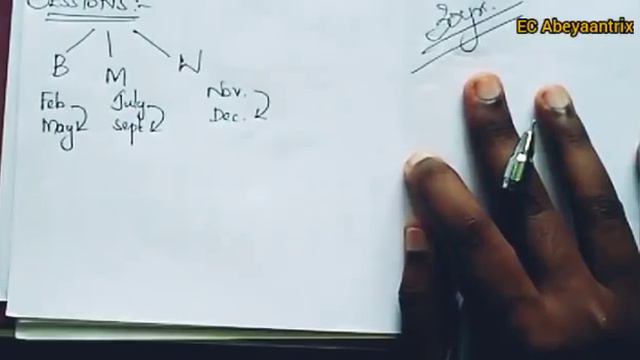 SESSIONS:-
EC Abeyaantrix
B M W
Feb. July Nov.
May Sept Dec.